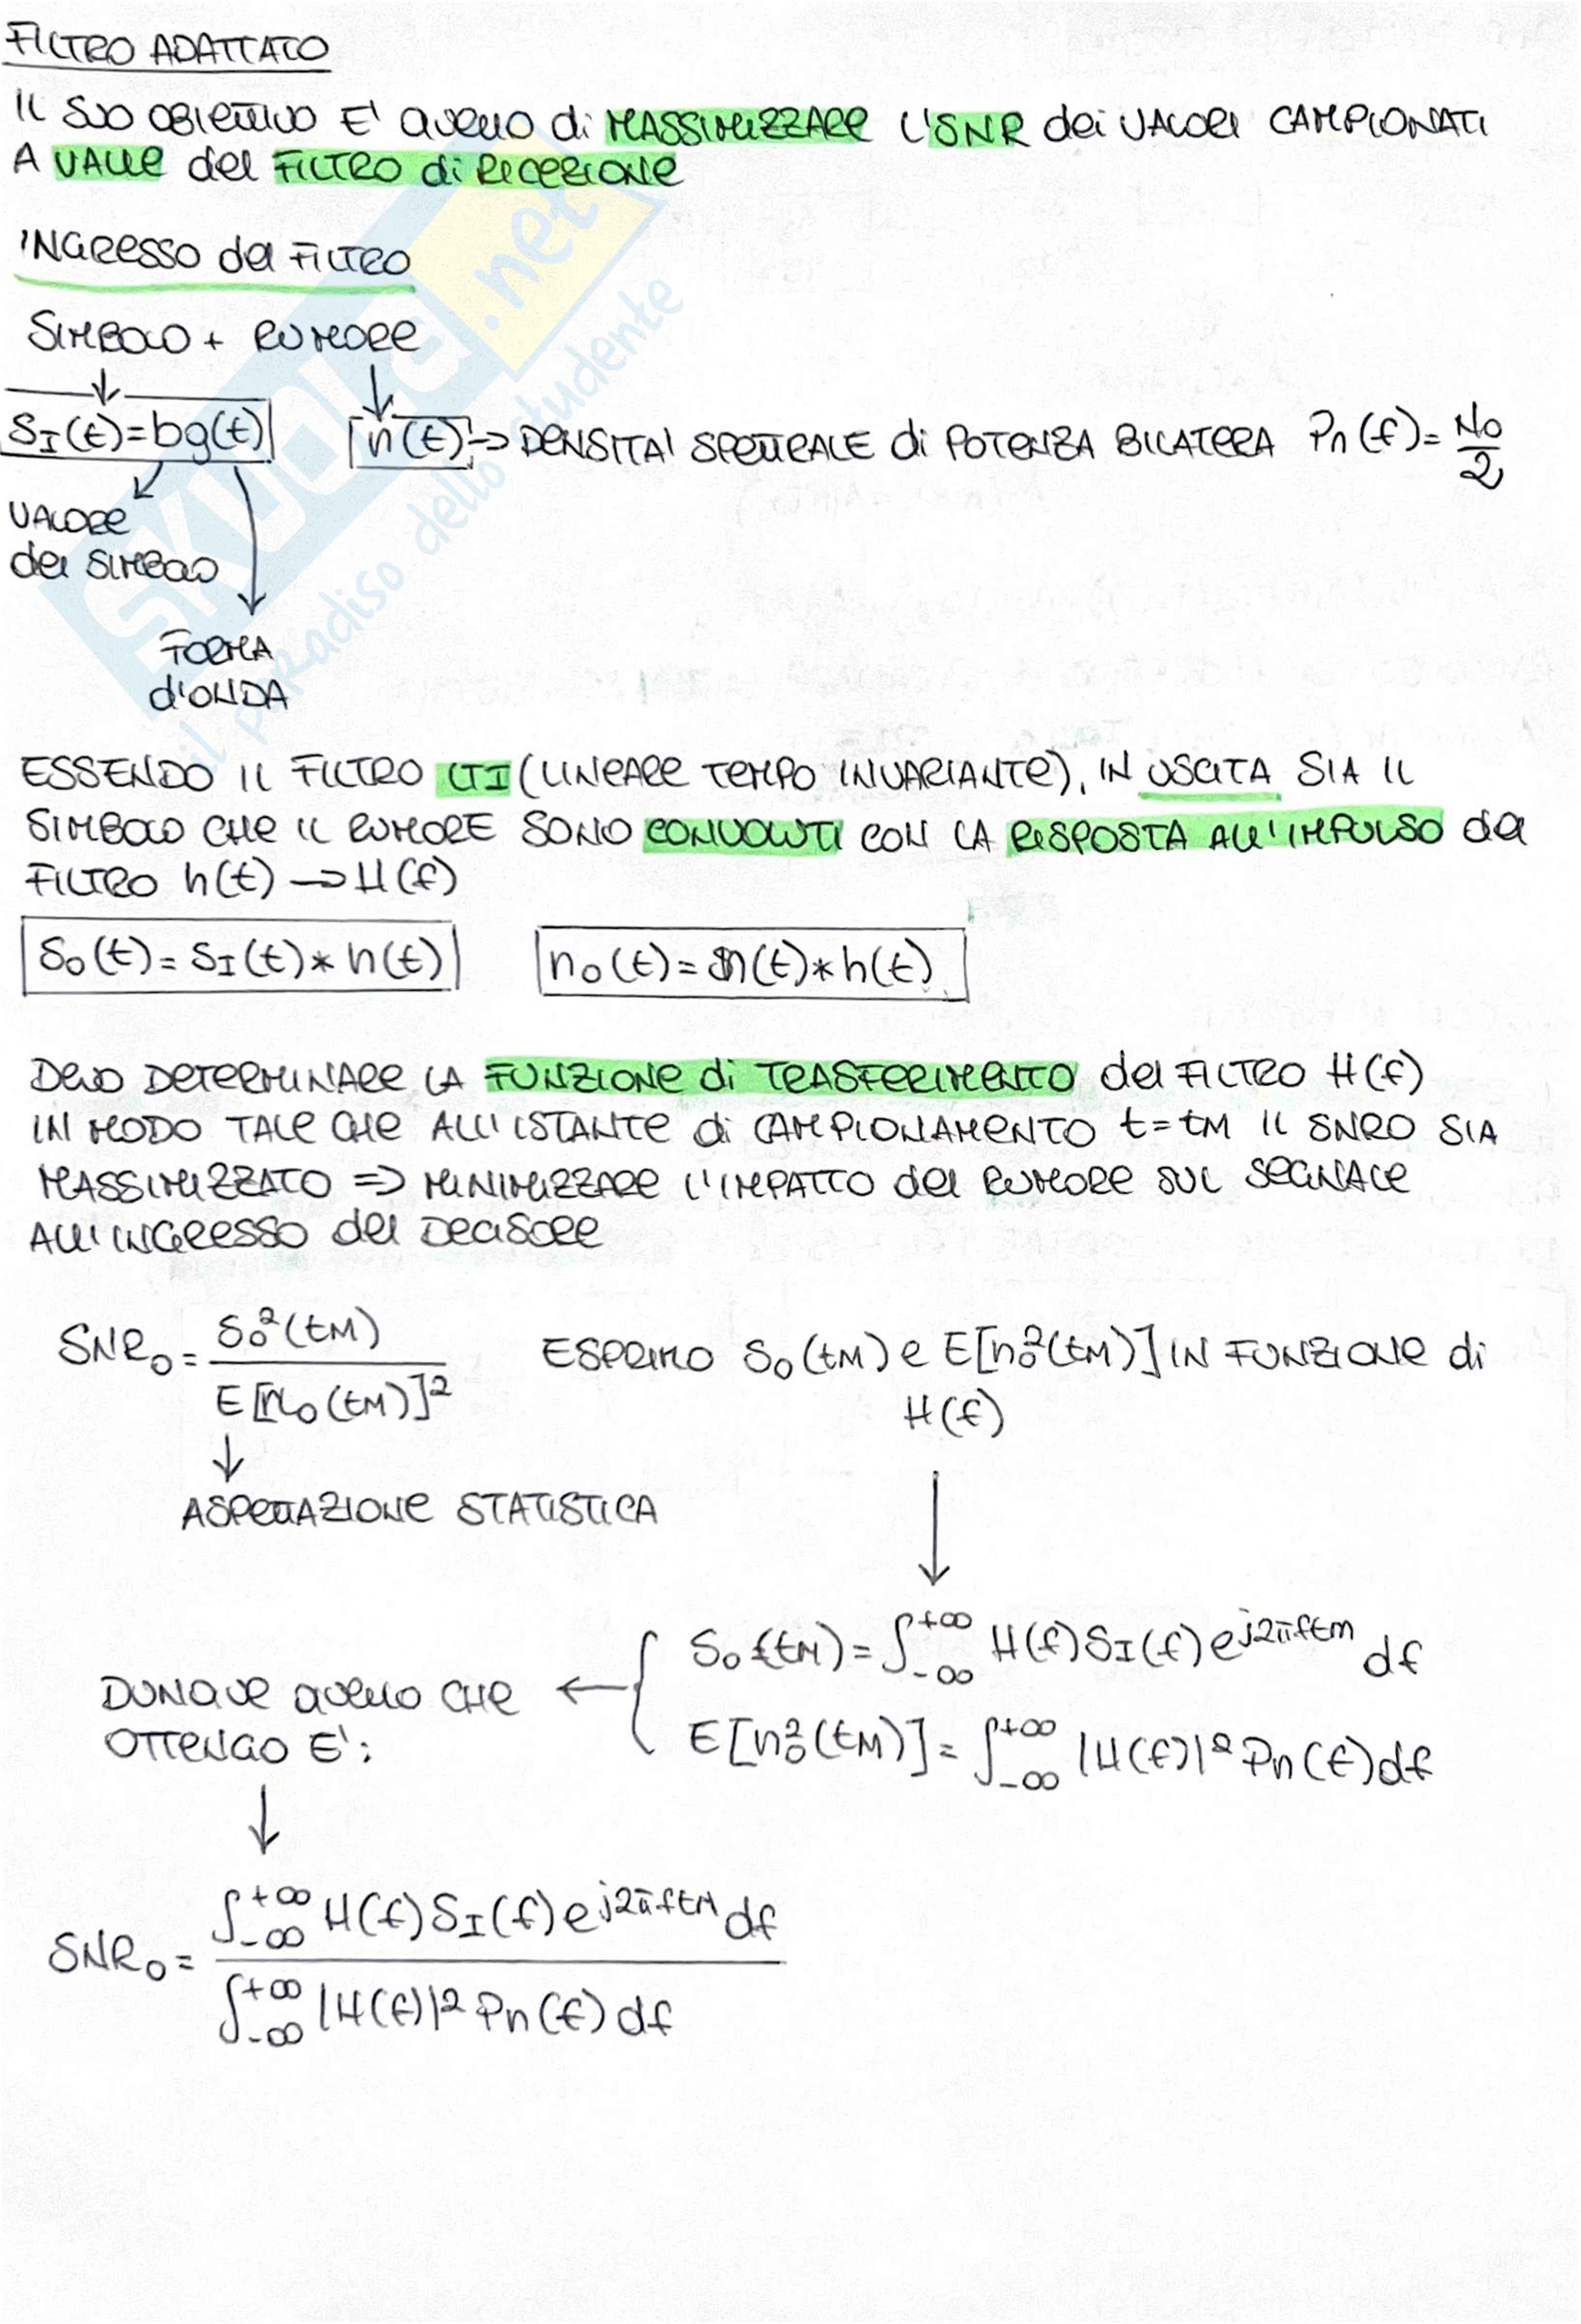 FILTRO ADATTATO
IL SUO OBIETTIVO E' QUELLO di MASSIMIZZARE L'SNR dei VALORI CAMPIONATI
A VALLE del FILTRO di RICEZIONE
INGRESSO del FILTRO
SIMBOLO + RUMORE
S_I(t)=bg(t) n(t) -> DENSITA' SPETTRALE di POTENZA BILATERA Pn(f)= No/2
VALORE
del SIMBOLO
FORMA
d'ONDA
ESSENDO IL FILTRO LTI (LINEARE TEMPO INVARIANTE), IN USCITA SIA IL
SIMBOLO CHE IL RUMORE SONO CONVOLUTI CON LA RISPOSTA ALL'IMPULSO del
FILTRO h(t) → H(f)
S_o(t)= S_I(t)*h(t) n_o(t)= n(t)*h(t)
DEVO DETERMINARE LA FUNZIONE di TRASFERIMENTO del FILTRO H(f)
IN MODO TALE CHE ALL'ISTANTE di CAMPIONAMENTO t=tM IL SNRO SIA
MASSIMIZZATO => MINIMIZZARE L'IMPATTO del RUMORE SUL SEGNALE
ALL'INGRESSO del DECISORE
SNR_o = S_o²(tM) / E[n_o(tM)]² ESPRIMO S_o(tM) e E[n_o²(tM)] IN FUNZIONE di
H(f)
↓
ASPETTAZIONE STATISTICA
S_o(tM)= ∫_-∞^+∞ H(f)S_I(f)e^j2πftm df
DUNQUE QUELLO CHE ←
OTTENGO E':
E[n_o²(tM)]= ∫_-∞^+∞ |H(f)|² Pn(f)df
SNR_o = ∫_-∞^+∞ H(f)S_I(f)e^j2πftM df / ∫_-∞^+∞ |H(f)|² Pn(f)df
SKUOLA.net
il paradiso dello studente